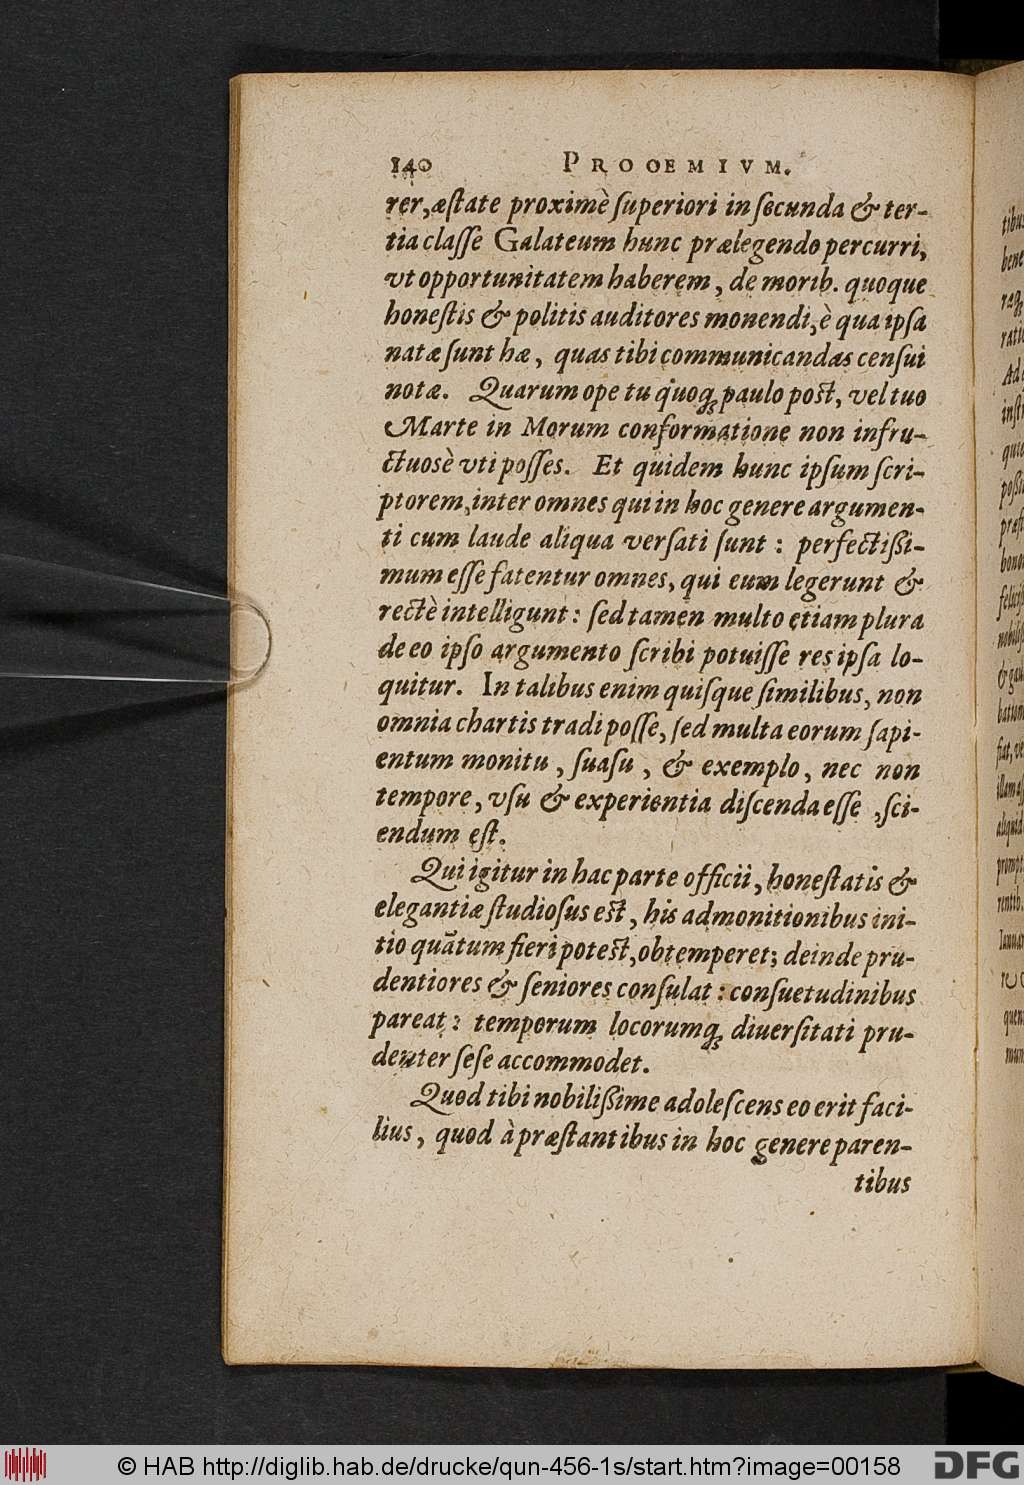 140 PROOEMIVM.
rer, æſtate proximè ſuperiori in ſecunda & ter-
tia claſſe Galateum hunc prælegendo percurri,
vt opportunitatem haberem, de morib. quoque
honeſtis & politis auditores monendi, è qua ipſa
natæ ſunt hæ, quas tibi communicandas cenſui
notæ. Quarum ope tu quoq; paulo poſt, vel tuo
Marte in Morum conformatione non infru-
ctuosè vti poſſes. Et quidem hunc ipſum ſcri-
ptorem, inter omnes qui in hoc genere argumen-
ti cum laude aliqua verſati ſunt : perfectißi-
mum eſſe fatentur omnes, qui eum legerunt &
rectè intelligunt : ſed tamen multo etiam plura
de eo ipſo argumento ſcribi potuiſſe res ipſa lo-
quitur. In talibus enim quiſque ſimilibus, non
omnia chartis tradi poſſe, ſed multa eorum ſapi-
entum monitu, ſuaſu, & exemplo, nec non
tempore, vſu & experientia diſcenda eſſe, ſci-
endum eſt.
Qui igitur in hac parte officii, honeſtatis &
elegantiæ ſtudioſus eſt, his admonitionibus ini-
tio quãtum fieri poteſt, obtemperet; deinde pru-
dentiores & ſeniores conſulat : conſuetudinibus
pareat : temporum locorumq; diuerſitati pru-
denter ſeſe accommodet.
Quod tibi nobilißime adoleſcens eo erit faci-
lius, quod à præſtantibus in hoc genere paren-
tibus
© HAB http://diglib.hab.de/drucke/qun-456-1s/start.htm?image=00158 DFG